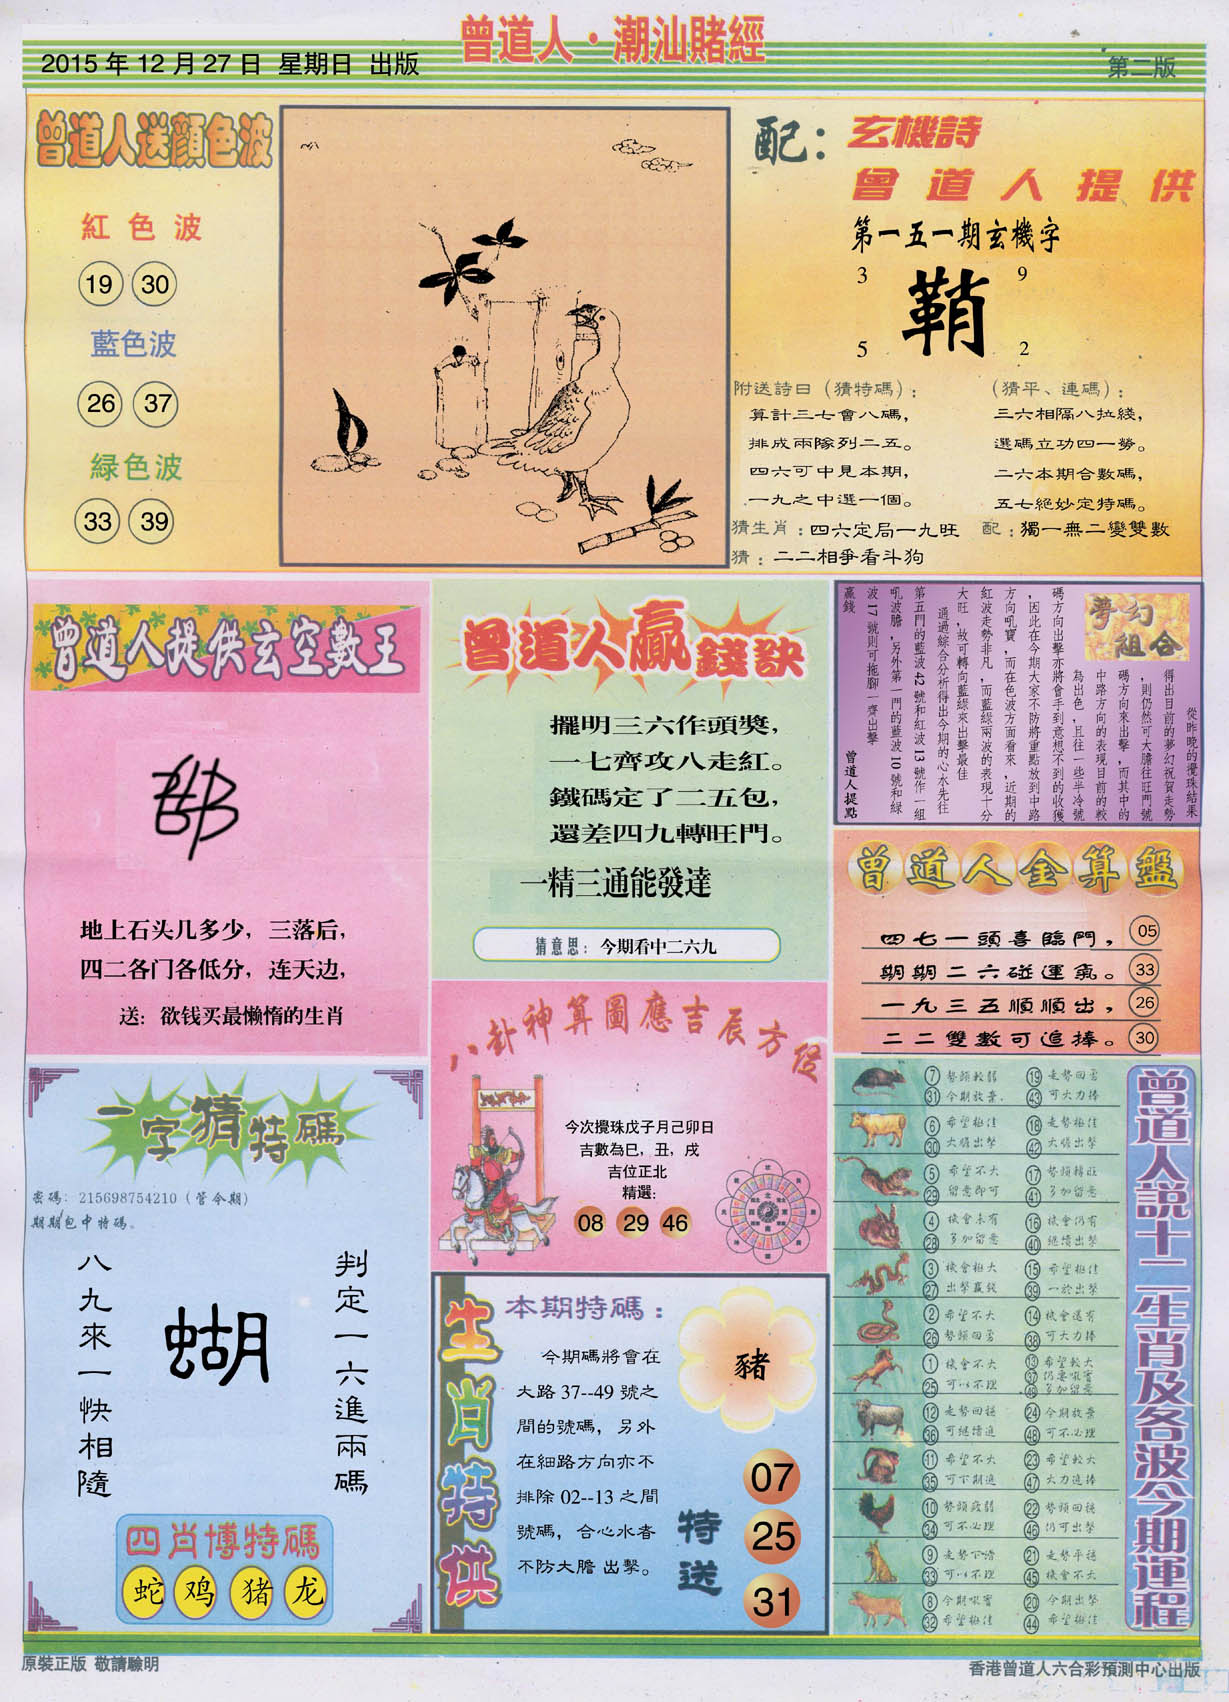 2015年12月27日 星期日 出版
曾道人·潮汕賭經
第二版
曾道人送顏色波
紅色波
19 30
藍色波
26 37
緑色波
33 39
配：玄機詩
曾道人提供
第一五一期玄機字
3 9
鞘
5 2
附送詩曰（猜特碼）：
算計三七會八碼，
排成兩隊列二五。
四六可中見本期，
一九之中選一個。
（猜平、連碼）：
三六相隔八拉綫，
選碼立功四一勞。
二六本期合數碼，
五七絕妙定特碼。
猜生肖：四六定局一九旺
配：獨一無二變雙數
猜：二二相爭看斗狗
曾道人提供玄空數王
地上石头几多少，三落后，
四二各门各低分，连天边，
送：欲钱买最懒惰的生肖
曾道人贏錢訣
擺明三六作頭獎，
一七齊攻八走紅。
鐵碼定了二五包，
還差四九轉旺門。
一精三通能發達
猜意思：今期看中二六九
夢幻組合
從昨晚的攪珠結果
得出目前的夢幻祝賀走勢
，則仍然可大膽往旺門號
碼方向來出擊，而其中的
中路方向的表現目前的較
為出色，且往一些半冷號
碼方向出擊亦將會手到意想不到的收獲
，因此在今期大家不防將重點放到中路
方向吼寶，而在色波方面看來，近期的
紅波走勢非凡，而藍緑兩波的表現十分
大旺，故可轉向藍緑來出擊最佳
通過綜合分析得出今期的心水先往
第五門的藍波42號和紅波13號作一組
吼波膽，另外第一門的藍波10號和緑
波17號則可拖腳一齊出擊
贏錢
曾道人提點
曾道人金算盤
四七一頭喜臨門， 05
期期二六碰運氣。 33
一九三五順順出， 26
二二雙數可追捧。 30
八卦神算圖應吉辰方位
今次攪珠戊子月己卯日
吉數為巳，丑，戌
吉位正北
精選：
08 29 46
一字猜特碼
密碼：215698754210（管令期）
期期包中特碼。
八九來一快相隨
蝴
判定一六進兩碼
四肖博特碼
蛇 鸡 猪 龙
生肖特供
本期特碼：
今期碼將會在
大路37--49號之
間的號碼，另外
在細路方向亦不
排除02--13之間
號碼，合心水者
不防大膽出擊。
豬
特送
07
25
31
曾道人説十二生肖及各波今期運程
7 勢頭較弱 19 走勢回勇
31 今期放棄. 43 可大力捧
6 希望極佳 18 走勢極佳
30 大膽出擊 42 大膽出擊
5 希望不大 17 勢頭轉旺
29 留意即可 41 多加留意
4 機會未有 16 機會仍有
28 多加留意 40 繼續出擊
3 機會極大 15 希望極佳
27 出擊贏錢 39 一於出擊
2 希望不大 14 機會還有
26 勢頭回勇 38 可大力捧
1 機會不大 13 希望較大
25 可以不理 37 仍要吼實
49 多加留意
12 走勢回穩 24 今期放棄
36 可繼續追 48 可不必理
11 希望不大 23 希望較大
35 可下期追 47 大力追捧
10 勢頭疲弱 22 勢頭回穩
34 可不必理 46 仍可出擊
9 走勢下滑 21 走勢平穩
33 可以不理 45 機會不大
8 今期吼實 20 今期出擊
32 希望極佳 44 希望極佳
原裝正版 敬請驗明
香港曾道人六合彩預測中心出版